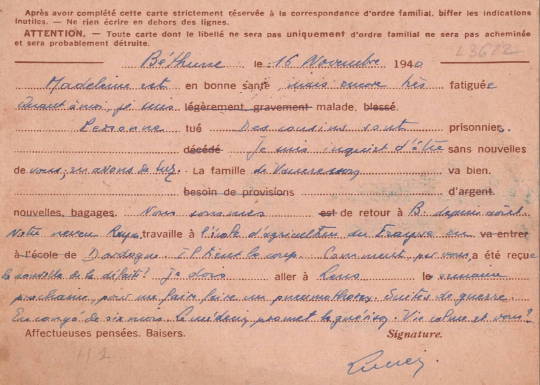 Après avoir complété cette carte strictement réservée à la correspondance d'ordre familial, biffer les indications
inutiles. — Ne rien écrire en dehors des lignes.
ATTENTION. — Toute carte dont le libellé ne sera pas uniquement d'ordre familial ne sera pas acheminée
et sera probablement détruite.
Béthune le 16 Novembre 1940
Madeleine est en bonne santé mais encore très fatiguée
Quant à moi, je suis légèrement, gravement malade, blessé.
Personne tué Des cousins sont prisonniers.
décédé Je suis inquiet d'être sans nouvelles
de vous; en avons de . La famille de va bien.
besoin de provisions d'argent.
nouvelles, bagages. Nous sommes est de retour à B. depuis août.
Notre neveu travaille à l'école d'agriculture du en va entrer
à l'école de Dordogne. Comment, par vous, a été reçue
la nouvelle de la défaite! Je dois aller à le semaine
prochaine, pour me faire faire un pneumothorax. Suites de guerre.
En congé de six mois. Le médecin promet la guérison. Vie calme et vous?
Affectueuses pensées. Baisers. Signature.